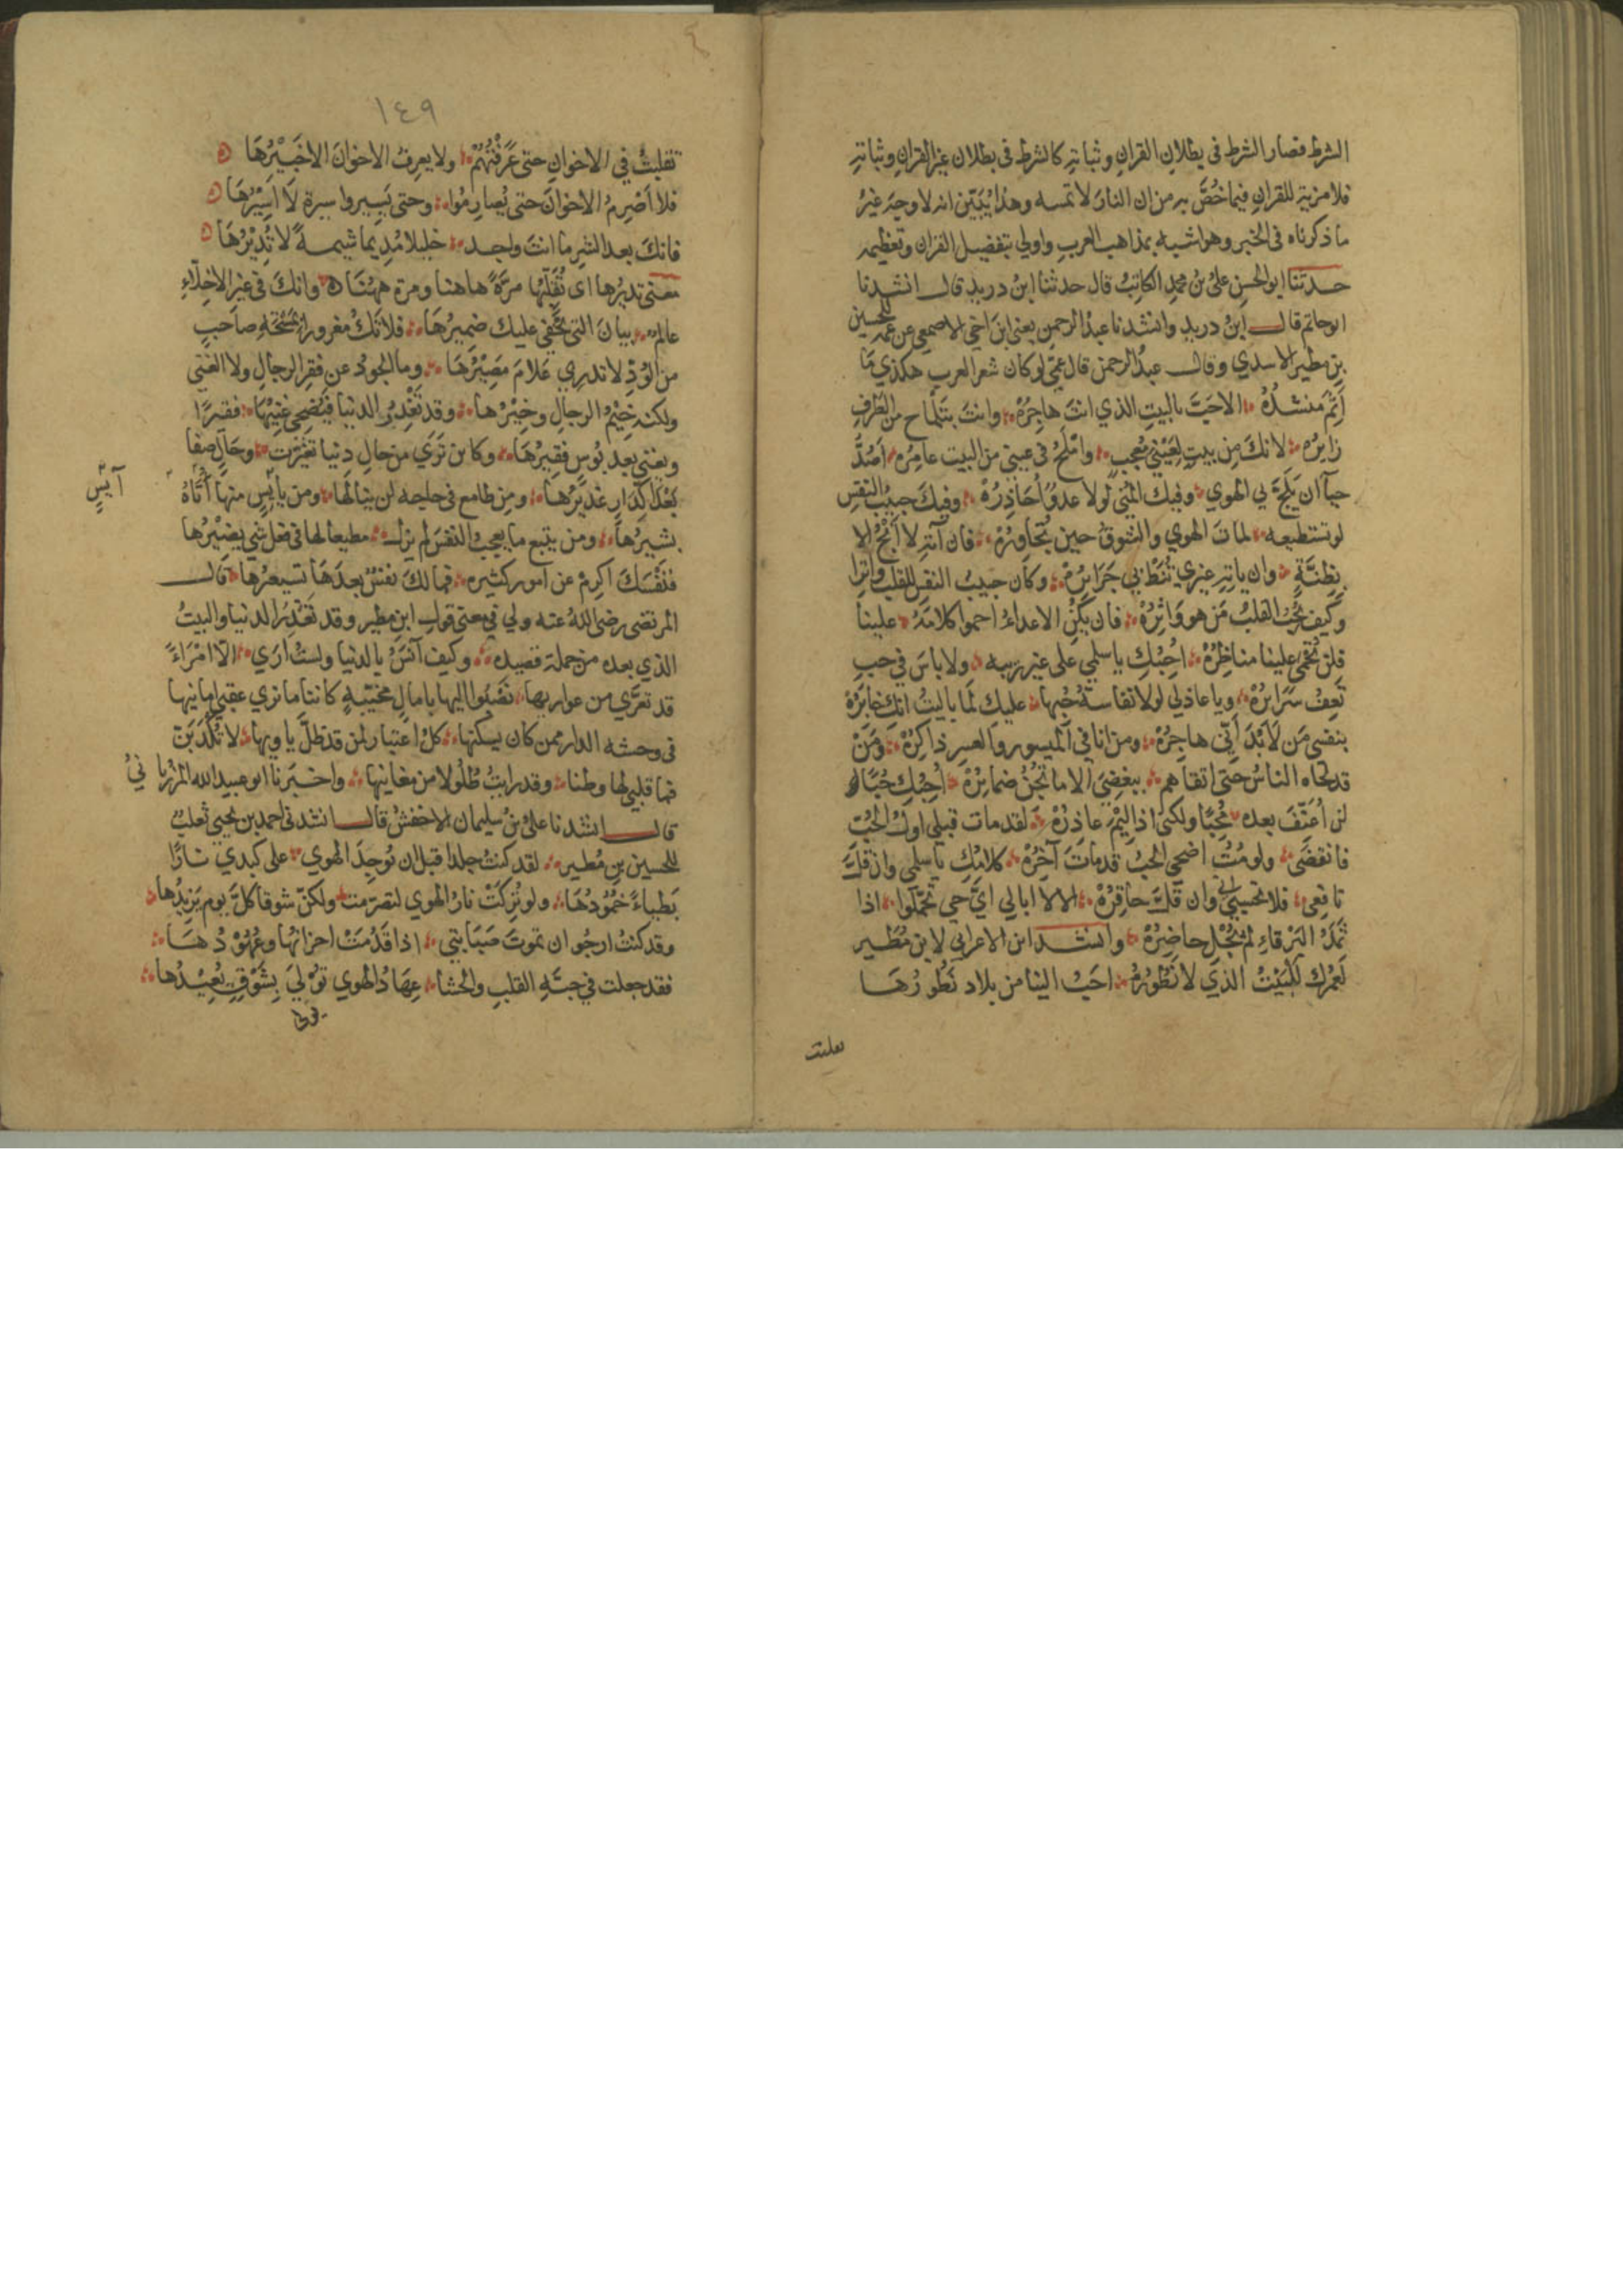 الشرط فصار الشرط فى بطلان القران وثباته كالشرط فى بطلان غير القران وثباته
فلا مزية للقران فيما خُصَّ به من ان النار لا تمسه وهذا يُبَيّن انه لا وجه غيرُ
ما ذكرناه فى الخبر وهو اشبه بمذاهب العرب واولى بتفضيل القران وتعظيمه
حدثنا ابو الحسن علىُ بنُ محمد الكاتبُ قال حدثنا ابنُ دريد قال انشدنا
ابو حاتم قال ابنُ دريد وانشدنا عبدُ الرحمن يعنى ابنَ اخى الاصمعى عن عمه للحسين
بن مطير الاسدي وقال عبدُ الرحمن قال عمّى لو كان شعر العرب هكذى مَا
اَثِمَ مُنشدُهْ الا حَبَّ بالبيتِ الذي انتَ هاجِرُهْ وانتَ بتَلْماح من الطرفِ
زايرُه لانكَ من بيتٍ لِعَيْنى مُعجبٍ واَمْلَحُ فى عينى من البيت عامِرُه اَصُدُّ
حيآ ان يَلجَّ بي الهوي وفيك المُنى لولا عدوٌ اُحَاذِرُهْ وفيكَ حبيبُ النفس
لو تستطيعه لماتَ الهوي والشوقُ حين تُجاوِرُهْ فان آتِهِ لا اَنْجُ الا
بِظِنَّةٍ وان ياتِهِ غيري تُنَطْ بي جَرَايِرُهْ وكان حبيبُ النفس للقلب واترا
وكيف يُحِبُ القلبُ مَن هو وَاتِرُهْ فان يكنُ الاعداءُ احموا كلامَهُ علينا
فلن تُحمَى علينا مناظِرُهْ اُحِبُكِ يا سلمي على غير ريبه ولا باسَ في حب
تَعِفُ سَرَايرُهْ ويا عاذلي لولا نفاسةُ حُبِها عليكِ لَما باليتُ انكِ خابرُهْ
بنفسى مَن لَا بُدَ اَنّى هاجِرُهْ ومن انا في الميسور والعسر ذاكِرُهْ ومَنْ
قد لحاه الناسُ حتى اتقاهم ببغضي الا ما تجُنُ ضمايرُهْ اُحِبُكِ حُبًّا
لن اُعَنّفَ بعده مُحِبًا ولكنى اذا لِيمَ عاذِرُهْ لقد مات قبلي اولُ الحُبِ
فانقضَى ولو مُتُ اضحى الحبُ قد ماتَ آخِرُهْ كلامُكِ يا سلمي وان قلَّ
نافعى فلا تحسبى انى وان قَلَّ حاقِرُهْ الا لا ابالى ايَّ حي تحمّلوا اذا
ثَمَدُ البَرْقاءِ لم يُجْلِ حاضِرُهْ وانشد ابن الاعرابى لابن مُطَير
لَعَمْرُكَ للبَيْتُ الذي لا نَطُورُهُ احَبُ الينا من بلاد نَطُورُهَا
تقلبتُ
١٤٩
تقلبتُ في الاخوانِ حتى عَرَفْتُهُمْ ولا يعرفُ الاخوانَ الا خَبِيرُهَا
فلا اَصْرِمُ الاخوانَ حتى يُصارِمُوا وحتى يَسيروا سيرة لَا اَسِيْرُهَا
فانكَ بعد الشرِ ما انتَ واجد خليلا مُدِيما شيمةً لا يُدِيْرُهَا
معنى تديرُها اى تُقَلّبُها مرّةً هاهنا ومرة ههُنَا وانكَ فى غير الاخلّاءِ
عالمٌ بيانَ التى يُخفى عليك ضميرُهَا فلا تكُ مغرورا بمَسْحَةِ صاحبٍ
من الوُدِّ لا تدرِي عَلَامَ مَصِيرُهَا وما الجودُ عن فقر الرجالِ ولا الغنى
ولكنه خِيْمُ الرجالِ وخِيْرُها وقد تَغْدِرُ الدنيا فيُضحِى غنِيُهَا فقيرًا
ويغنى بعد بُوسٍ فقيرُهَا وكاين تَرَي من حالِ دنيا تغيّرت وحالٍ صفا
بَعْدَ اكدارٍ غَديرُهَا ومن طامع فى حاجه لن ينالَها ومن يايس منها اَتَاهُ
آيسٍ
بشيرُهَا ومن يتبع ما يعجبُ النفسَ لم يزل مطيعا لها فى فعل شي يضيرُها
فنَفْسَكَ اكرِمْ عن امور كثيره فما لكَ نفسٌ بعدَهَا تستعيرُهَا قال
المرتضى رضى اللهُ عنه ولي في معنى قول ابن مطير وقد تَغْدِرُ الدنيا والبيتُ
الذي بعده من جملة قصيده وكيف آنَسُ بالدنيا ولستُ اَرَي الّا امْرَاءً
قد تعرَّي من عواريها نَصْبُوا اليها بامالٍ مُخَيّبةٍ كاننا ما نري عقبى امانيها
فى وحشه الدار ممن كان يسكنُها كلُ اعتبار لمن قد ظلَّ ياويها لا تكذَبَنّ
فما قلبي لها وطنا وقد رايتُ طُلُولا من مغانيها واخبرنا ابو عبيد الله المرزبانىُ
قال انشدنا علىُ بنُ سُليمان الاخفشُ قال انشدنى احمد بن يحيى ثعلب
للحسين بن مُطير لقد كنتُ جلدا قبل ان تُوقِدَ الهوي على كبدي نارًا
بَطيئاً خُمُودُهَا ولو تُرِكَتْ نارُ الهوي لتصرّمت ولكنّ شوقا كلَّ يوم يَزيدُها
وقد كنتُ ارجُو ان تموتَ صَبَابتى اذا قَدُمَتْ احزانُها وعُهُوْدُهَا
فقد جعلت في حبّةِ القلبِ والحشا عِهَادُ الهوي تُوْلَيَ بِشَوْقٍ يُعِيْدُها